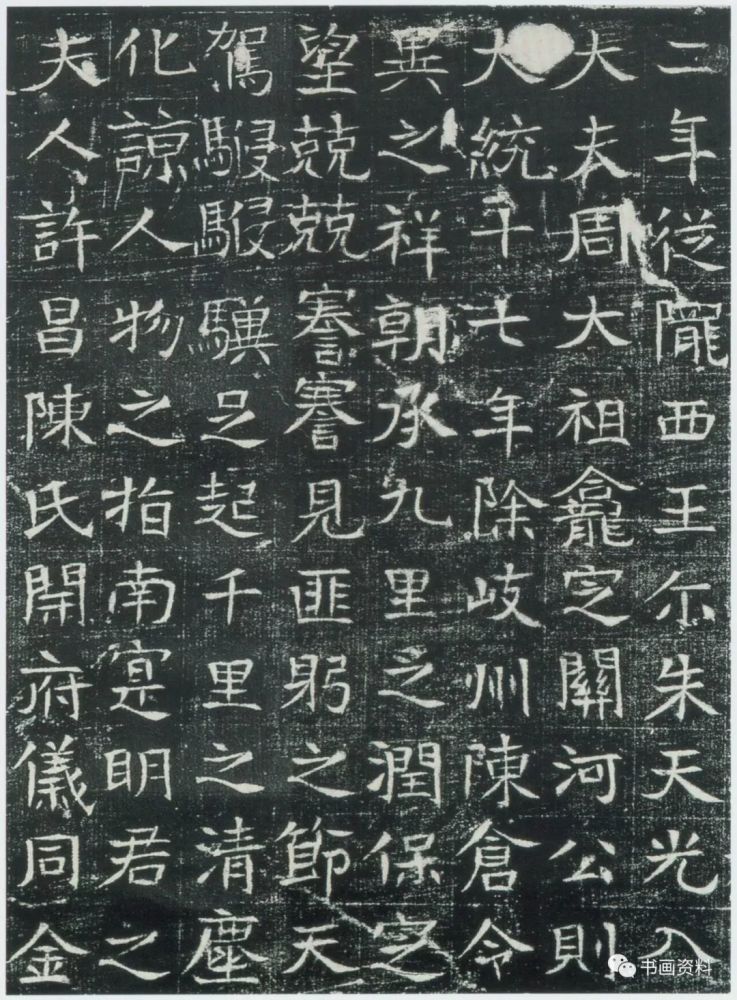 二年從隴西王尒朱天光入
大夫周大祖龕定關河公則
大統十七年除岐州陳倉令
異之祥朝承九里之潤保定
望兢兢謇謇見匪躬之節天
駕駸駸驥足起千里之清塵
化諒人物之指南寔明君之
夫人許昌陳氏開府儀同金
书画资料